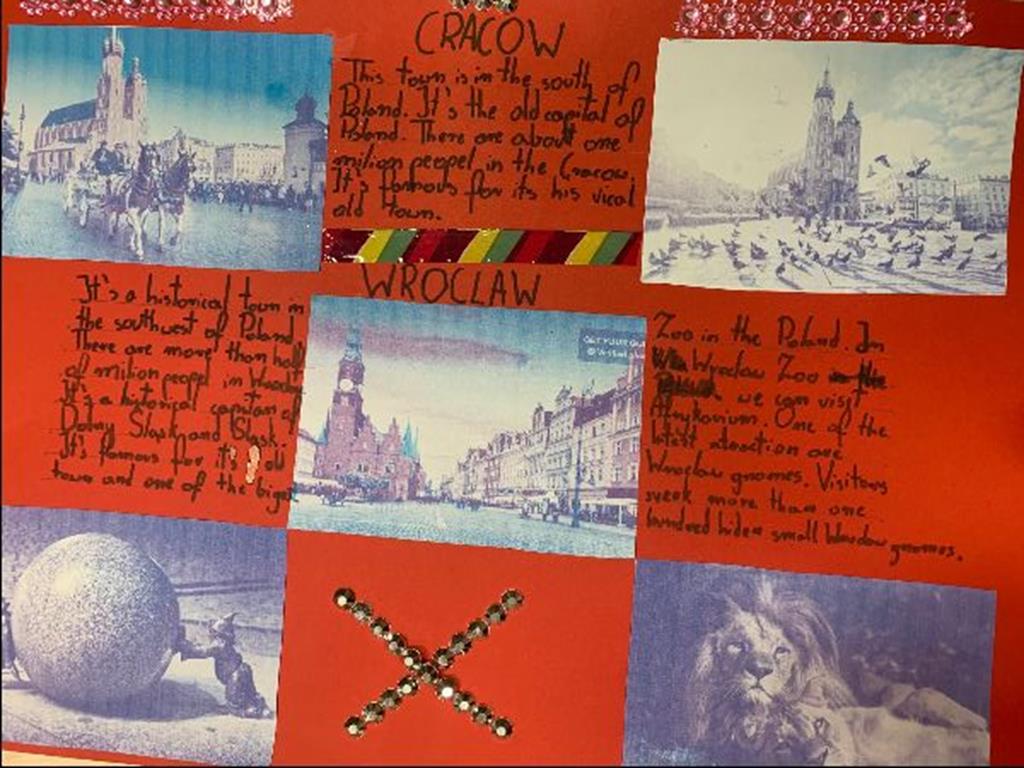 CRACOW
This town is in the south of
Poland. It's the old capital of
Poland. There are about one
milion peopel in the Cracow.
It's famous for its his vical
old town.
WROCLAW
It's a historical town in
the southwest of Poland
There are more than half
of milion peopel in Wroclaw
It's a historical capitan of
Dolny Slask and Slask.
It's famous for it's old
town and one of the biges
GET YOUR GUIDE
Zoo in the Poland. In
Wroclaw Zoo
we can visit
Afrykarium. One of the
latest atraction are
Wroclaw gnomes. Visitors
seek more than one
hundred hiden small Wroclaw gnomes.